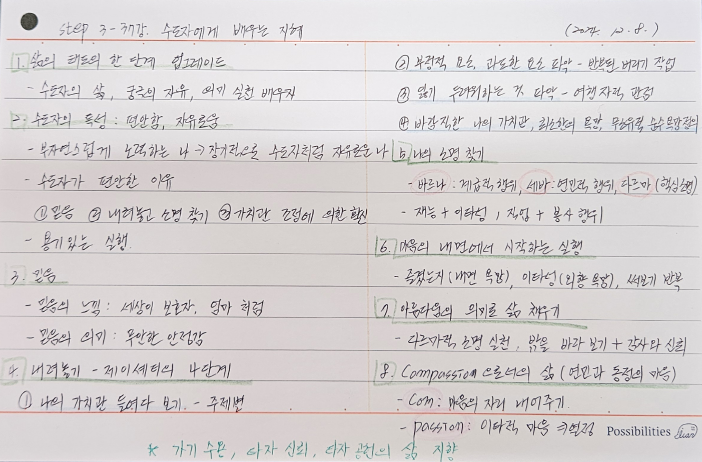 step 3-37강. 수도자에게 배우는 지혜
(2024. 12. 8.)
1. 삶의 태도의 한 단계 업그레이드
- 수도자의 삶, 궁극의 자유, 용기 실천 배우자
2. 수도자의 특성 : 편안함, 자유로움
- 부자연스럽게 노력하는 나 → 장기적으로 수도자처럼 자유로운 나
- 수도자가 편안한 이유
① 믿음 ② 내려놓고 소명 찾기 ③ 가치관 조정에 의한 확신
- 용기있는 실행.
3. 믿음
- 믿음의 느낌 : 세상이 보호자, 엄마 처럼
- 믿음의 의미 : 무안한 안정감
4. 내려놓기 - 제이셰티의 4단계
① 나의 가치관 들여다 보기. - 주제별
② 부정적 요소, 과도한 요소 파악 - 반복된 버리기 작업
③ 잃기 두려워하는 것 파악 - 여행자적 관점
④ 바람직한 나의 가치관, 최소한의 욕망,
5. 나의 소명 찾기
- 바르나 : 계급적 행위, 세바 : 연민적 행위, 다르마 (핵심소명)
- 재능 + 이타성, 직업 + 봉사 행위
6. 마음의 내면에서 시작하는 실행
- 즐겼는지 (내면 욕망), 이타성 (외향 욕망), 써보기 반복
7. 아름다움의 의미로 삶 채우기
- 다르마적 소명 실천, 밝음 바라 보기 + 감사와 신뢰
8. Compassion 으로서의 삶 (연민과 동정의 마음)
- Com : 마음의 자리 내어주기.
- passion : 이타적 마음 → 열정
Possibilities
* 자기 수용, 타자 신뢰, 타자 공헌의 삶 지향